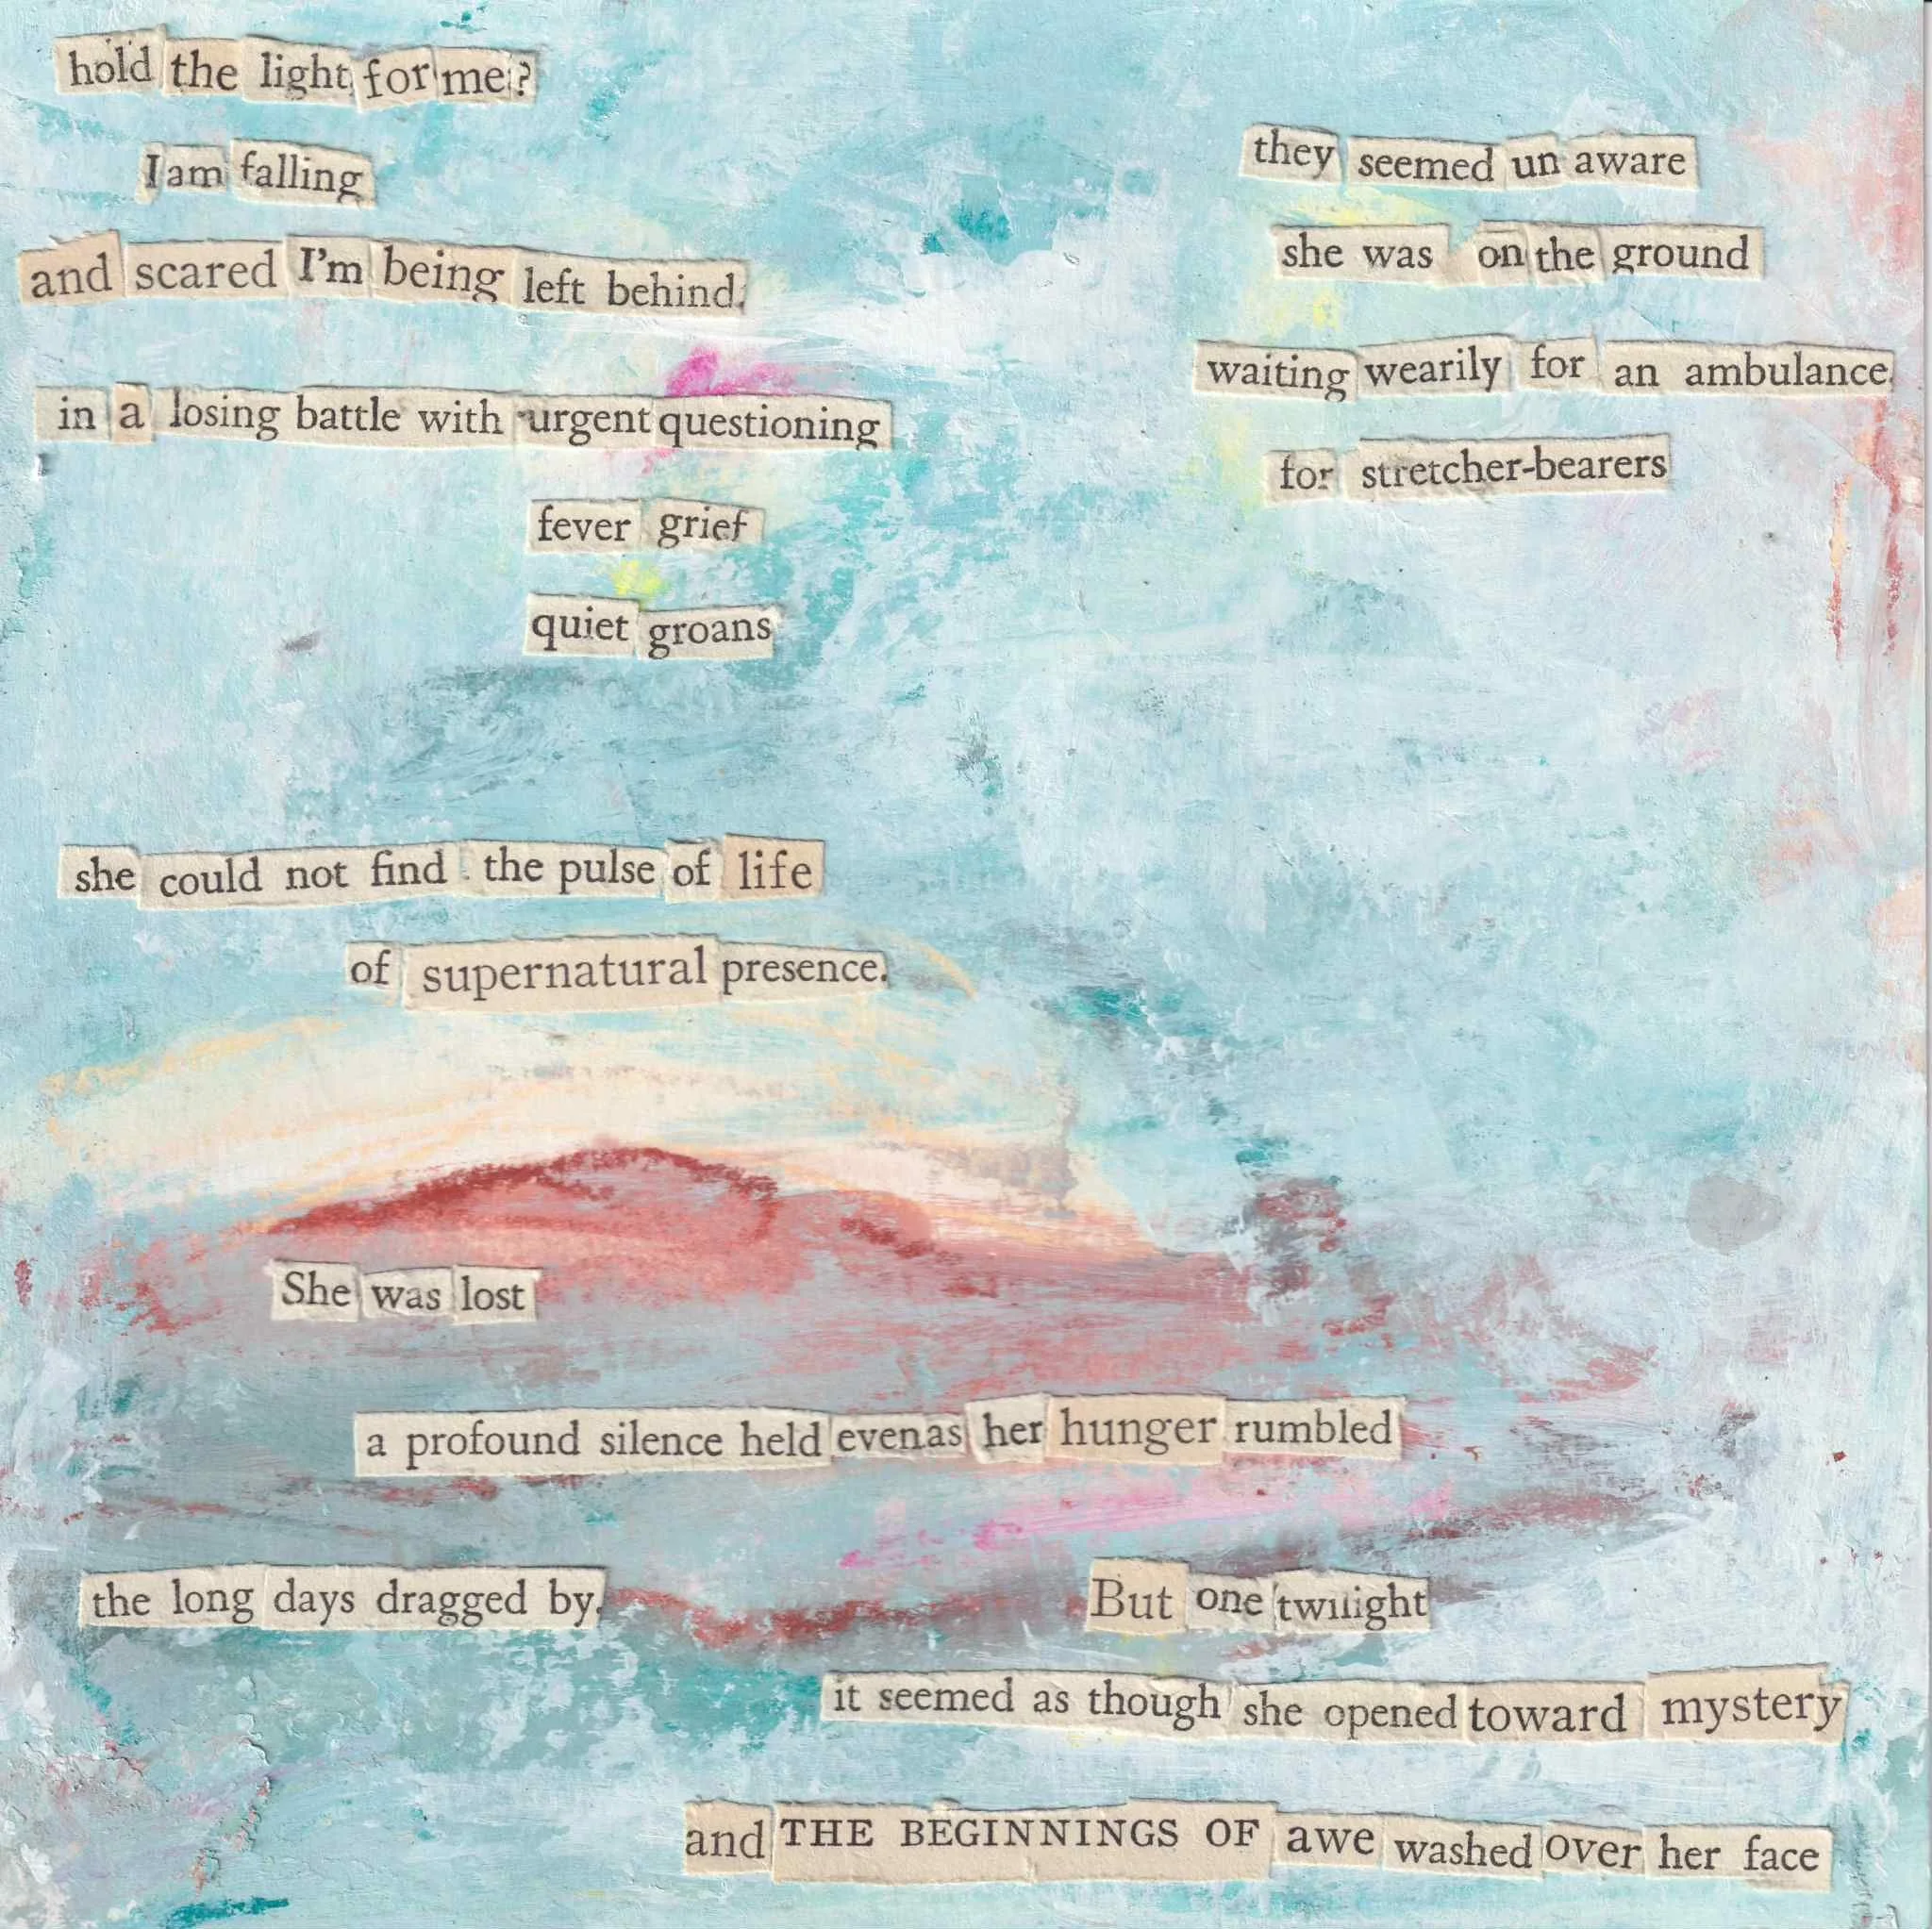 hold the light for me?
I am falling
and scared I'm being left behind.
in a losing battle with urgent questioning
fever grief
quiet groans
they seemed un aware
she was on the ground
waiting wearily for an ambulance
for stretcher-bearers
she could not find the pulse of life
of supernatural presence.
She was lost
a profound silence held even as her hunger rumbled
the long days dragged by.
But one twilight
it seemed as though she opened toward mystery
and THE BEGINNINGS OF awe washed over her face